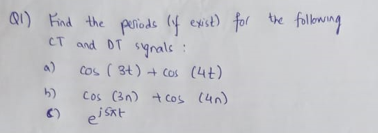 Q1) Find the periods (if exist) for the following
CT and DT signals :
a) cos (3t) + cos (4t)
b) cos (3n) + cos (4n)
c) e^{j5πt}